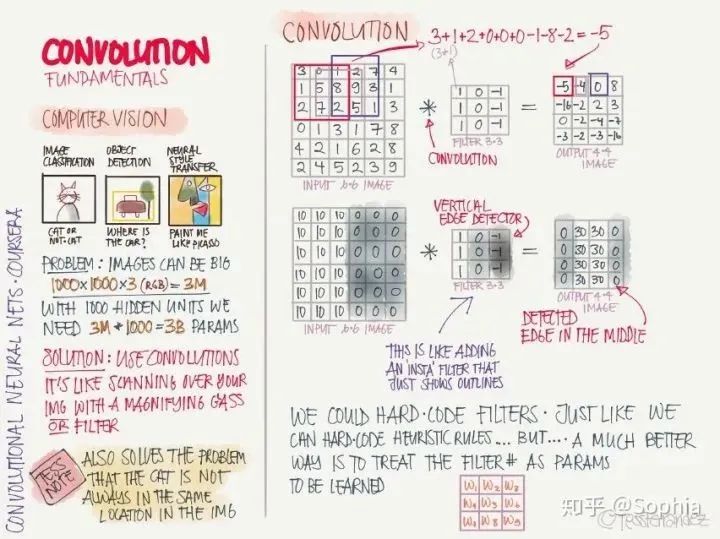 CONVOLUTION
FUNDAMENTALS
COMPUTER VISION
IMAGE CLASSIFICATION
OBJECT DETECTION
NEURAL STYLE TRANSFER
CAT OR NOT-CAT
WHERE IS THE CAR?
PAINT ME LIKE PICASSO
PROBLEM: IMAGES CAN BE BIG
1000×1000×3 (RGB) = 3M
WITH 1000 HIDDEN UNITS WE
NEED 3M * 1000 = 3B PARAMS
SOLUTION: USE CONVOLUTIONS
IT'S LIKE SCANNING OVER YOUR
IMG WITH A MAGNIFYING GASS
OR FILTER
TESS NOTE
ALSO SOLVES THE PROBLEM
THAT THE CAT IS NOT
ALWAYS IN THE SAME
LOCATION IN THE IMG
CONVOLUTIONAL NEURAL NETS · COURSERA
CONVOLUTION
3+1+2+0+0+0-1-8-2=-5
(3*1)
3 0 1 2 7 4
1 5 8 9 3 1
2 7 2 5 1 3
0 1 3 1 7 8
4 2 1 6 2 8
2 4 5 2 3 9
INPUT 6·6 IMAGE
*
CONVOLUTION
1 0 -1
1 0 -1
1 0 -1
FILTER 3·3
=
-5 -4 0 8
-16 -2 2 3
0 -2 -4 -7
-3 -2 -3 -16
OUTPUT 4·4 IMAGE
10 10 10 0 0 0
10 10 10 0 0 0
10 10 10 0 0 0
10 10 10 0 0 0
10 10 10 0 0 0
10 10 10 0 0 0
INPUT 6·6 IMAGE
*
VERTICAL
EDGE DETECTOR
1 0 -1
1 0 -1
1 0 -1
FILTER 3·3
=
0 30 30 0
0 30 30 0
0 30 30 0
0 30 30 0
OUTPUT 4·4 IMAGE
DETECTED
EDGE IN THE MIDDLE
THIS IS LIKE ADDING
AN 'INSTA' FILTER THAT
JUST SHOWS OUTLINES
WE COULD HARD·CODE FILTERS · JUST LIKE WE
CAN HARD·CODE HEURISTIC RULES... BUT.... A MUCH BETTER
WAY IS TO TREAT THE FILTER# AS PARAMS
TO BE LEARNED
W1 W2 W3
W4 W5 W6
W7 W8 W9
知乎 @Sophia
©TessFerrandez